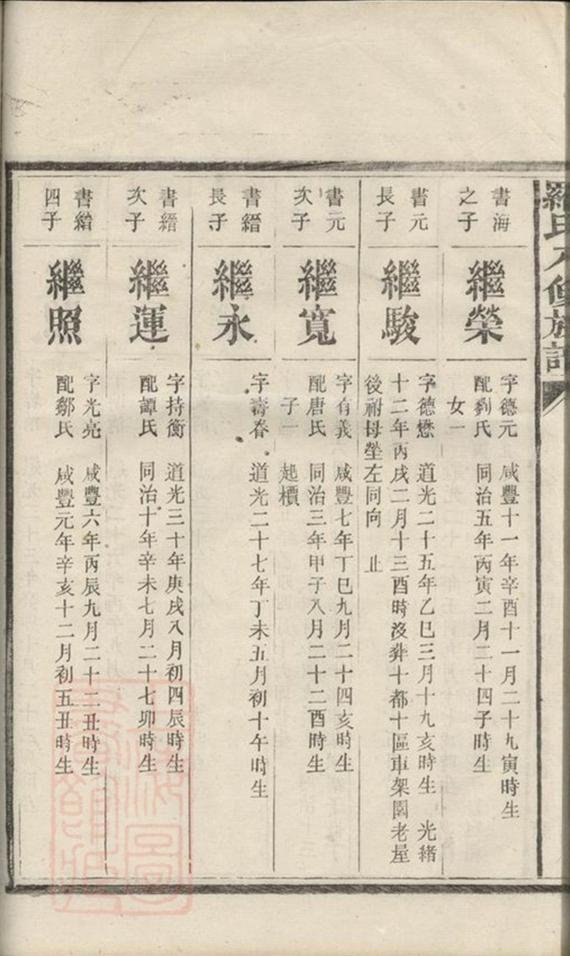 羅氏八修族譜
書海
之子
繼榮
字德元 咸豐十一年辛酉十一月二十九寅時生
配劉氏 同治五年丙寅二月二十四子時生
女一
書元
長子
繼駿
字德懋 道光二十五年乙巳三月十九亥時生 光緒
十二年丙戌二月十三酉時沒葬十都十區車架園老屋
後祔母塋左同向 止
書元
次子
繼寬
字有義 咸豐七年丁巳九月二十四亥時生
配唐氏 同治三年甲子八月二十二酉時生
子一 起檟
書縉
長子
繼永
字壽春 道光二十七年丁未五月初十午時生
書縉
次子
繼運
字持衡 道光三十年庚戌八月初四辰時生
配譚氏 同治十年辛未七月二十七卯時生
書縉
四子
繼照
字光亮 咸豐六年丙辰九月二十二丑時生
配鄒氏 咸豐元年辛亥十二月初五丑時生